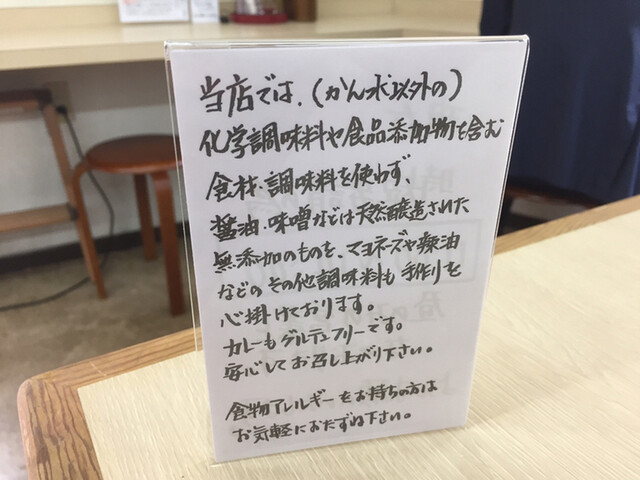 当店では、(かん水以外の)
化学調味料や食品添加物を含む
食材・調味料を使わず、
醤油・味噌などは天然醸造された
無添加のものを、マヨネーズや辣油
などのその他調味料も手作りを
心掛けております。
カレーもグルテンフリーです。
安心してお召し上がり下さい。
食物アレルギーをお持ちの方は
お気軽におたずね下さい。